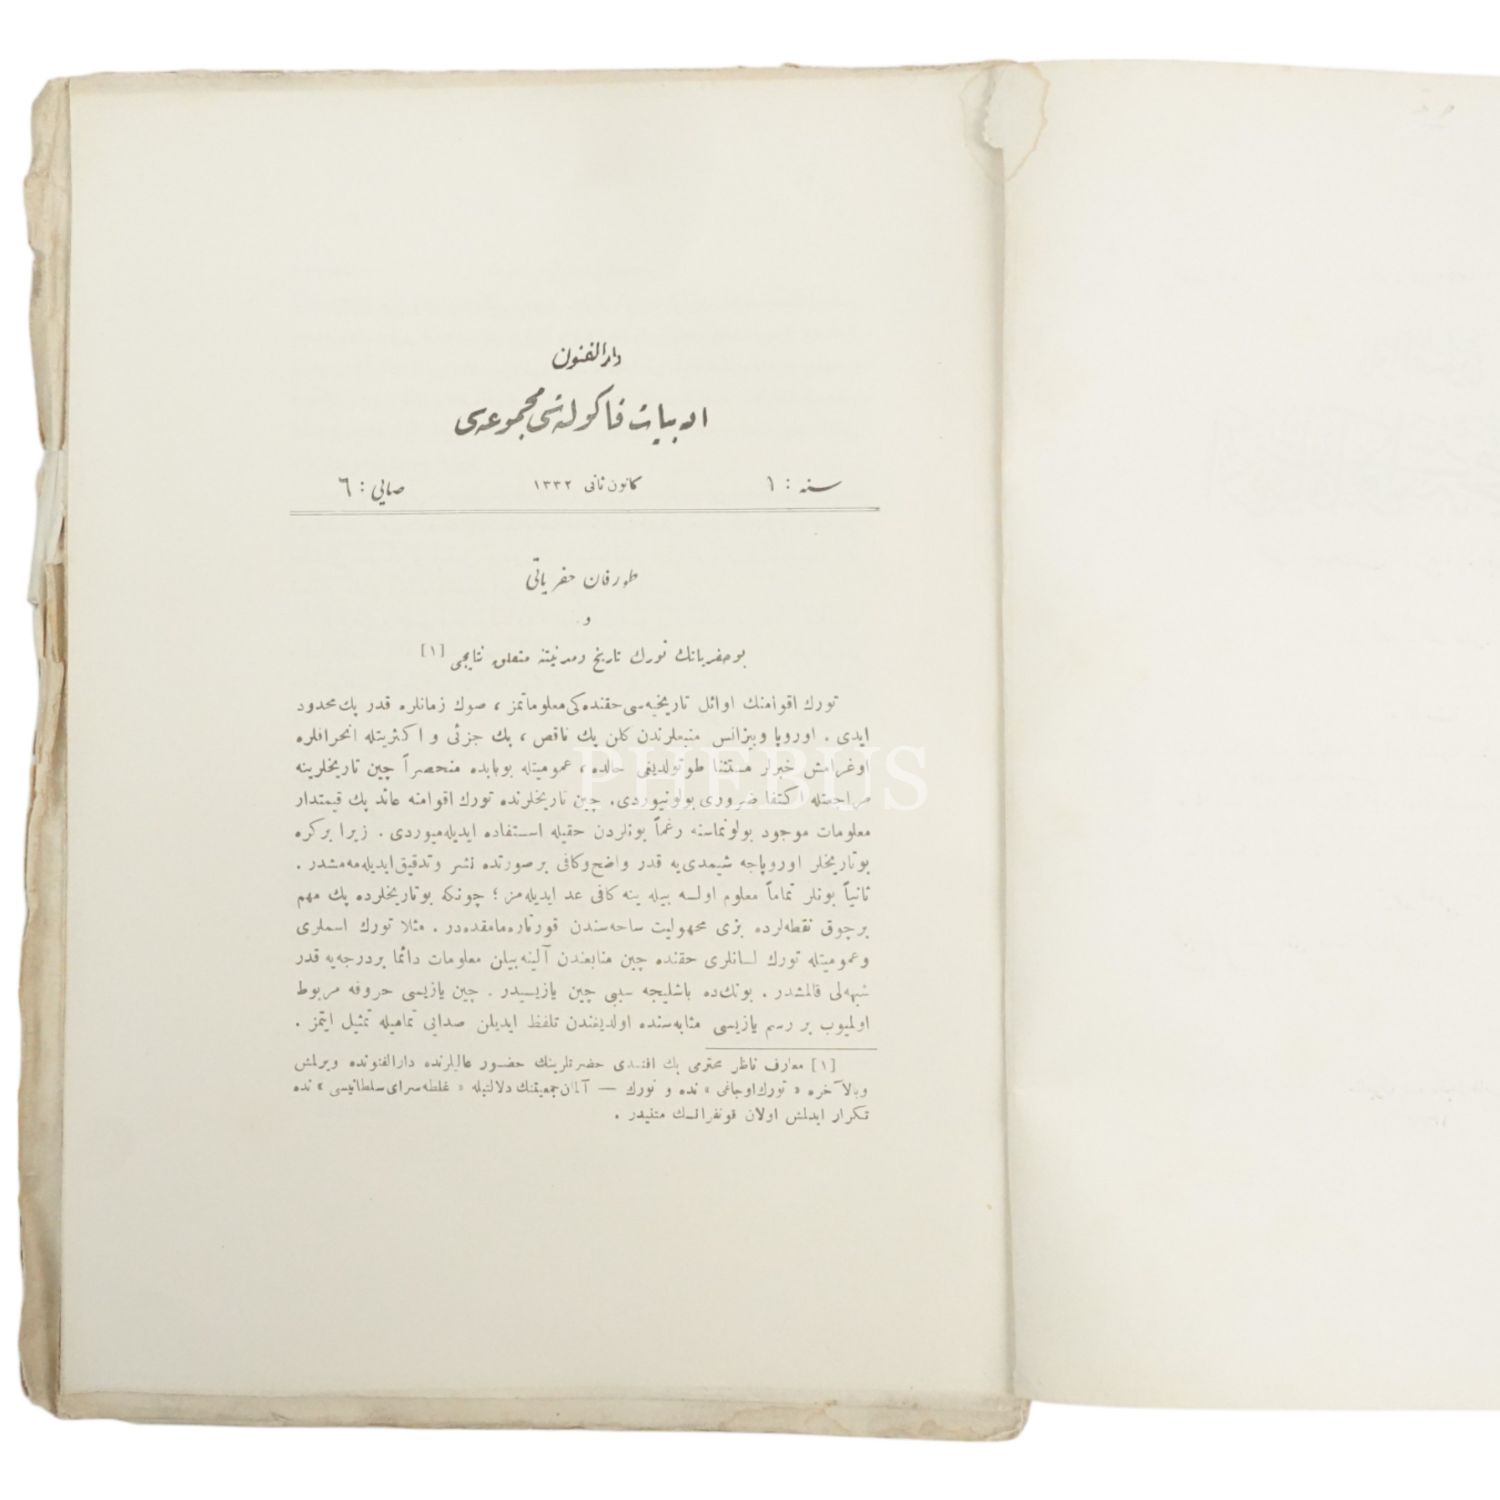 دار الفنون
ادبیات فاکولته‌سی مجموعه‌سی
سنه : ١ كانون ثانی ١٣٣٢ صایی : ٦
طورفان حفریاتی
و
بو حفریاتك تورك تاریخ و مدنیتنه متعلق نتایجی [١]
تورك اقوامنك اوائل تاریخیه‌سی حقنده‌كی معلوماتمز ، صوك زمانلره قدر پك محدود
ایدی . اوروپا و بیزانس منبعلرندن كلن پك ناقص ، پك جزئی و اكثریتله انحرافلره
اوغرامش خبرلر مستثنا طوتولدیغی حالده ، عمومیتله بوبابده منحصراً چین تاریخلرینه
مراجعتله اكتفا ضروری بولونیوردی. چین تاریخلرنده تورك اقوامنه عائد پك قیمتدار
معلومات موجود بولونماسنه رغماً بونلردن حقیله استفاده ایدیله‌میوردی . زیرا بركره
بوتاریخلر اوروپاجه شیمدی‌یه قدر واضح وكافی بر صورتده نشر و تدقیق ایدیله‌مه‌مشدر .
ثانیاً بونلر تماماً معلوم اولسه بیله ینه كافی عد ایدیله‌مز ؛ چونكه بوتاریخلرده پك مهم
برچوق نقطه‌لرده بزی مجهولیت ساحه‌سندن قورتاره‌مامقده‌در . مثلا تورك اسملری
وعمومیتله تورك لسانلری حقنده چین منابعندن آلینه‌بیلن معلومات دائما بردرجه‌یه قدر
شبهه‌لی قالمشدر . بونك‌ده باشلیجه سببی چین یازیسیدر . چین یازیسی حروفه مربوط
اولمیوب بر رسم یازیسی مثابه‌سنده اولدیغندن تلفظ ایدیلن صدایی تمامیله تمثیل ایتمز .
[١] معارف ناظر محترمی بك افندی حضرتلرینك حضور عالیلرنده دارالفنونده ویرلمش
وبالآخره « تورك اوجاغی » نده و تورك — آلمان جمعیتنك دلالتیله « غلطه‌سرای سلطانیسی » نده
تكرار ایدلمش اولان قونفرانسك متنیدر .
PHEBUS